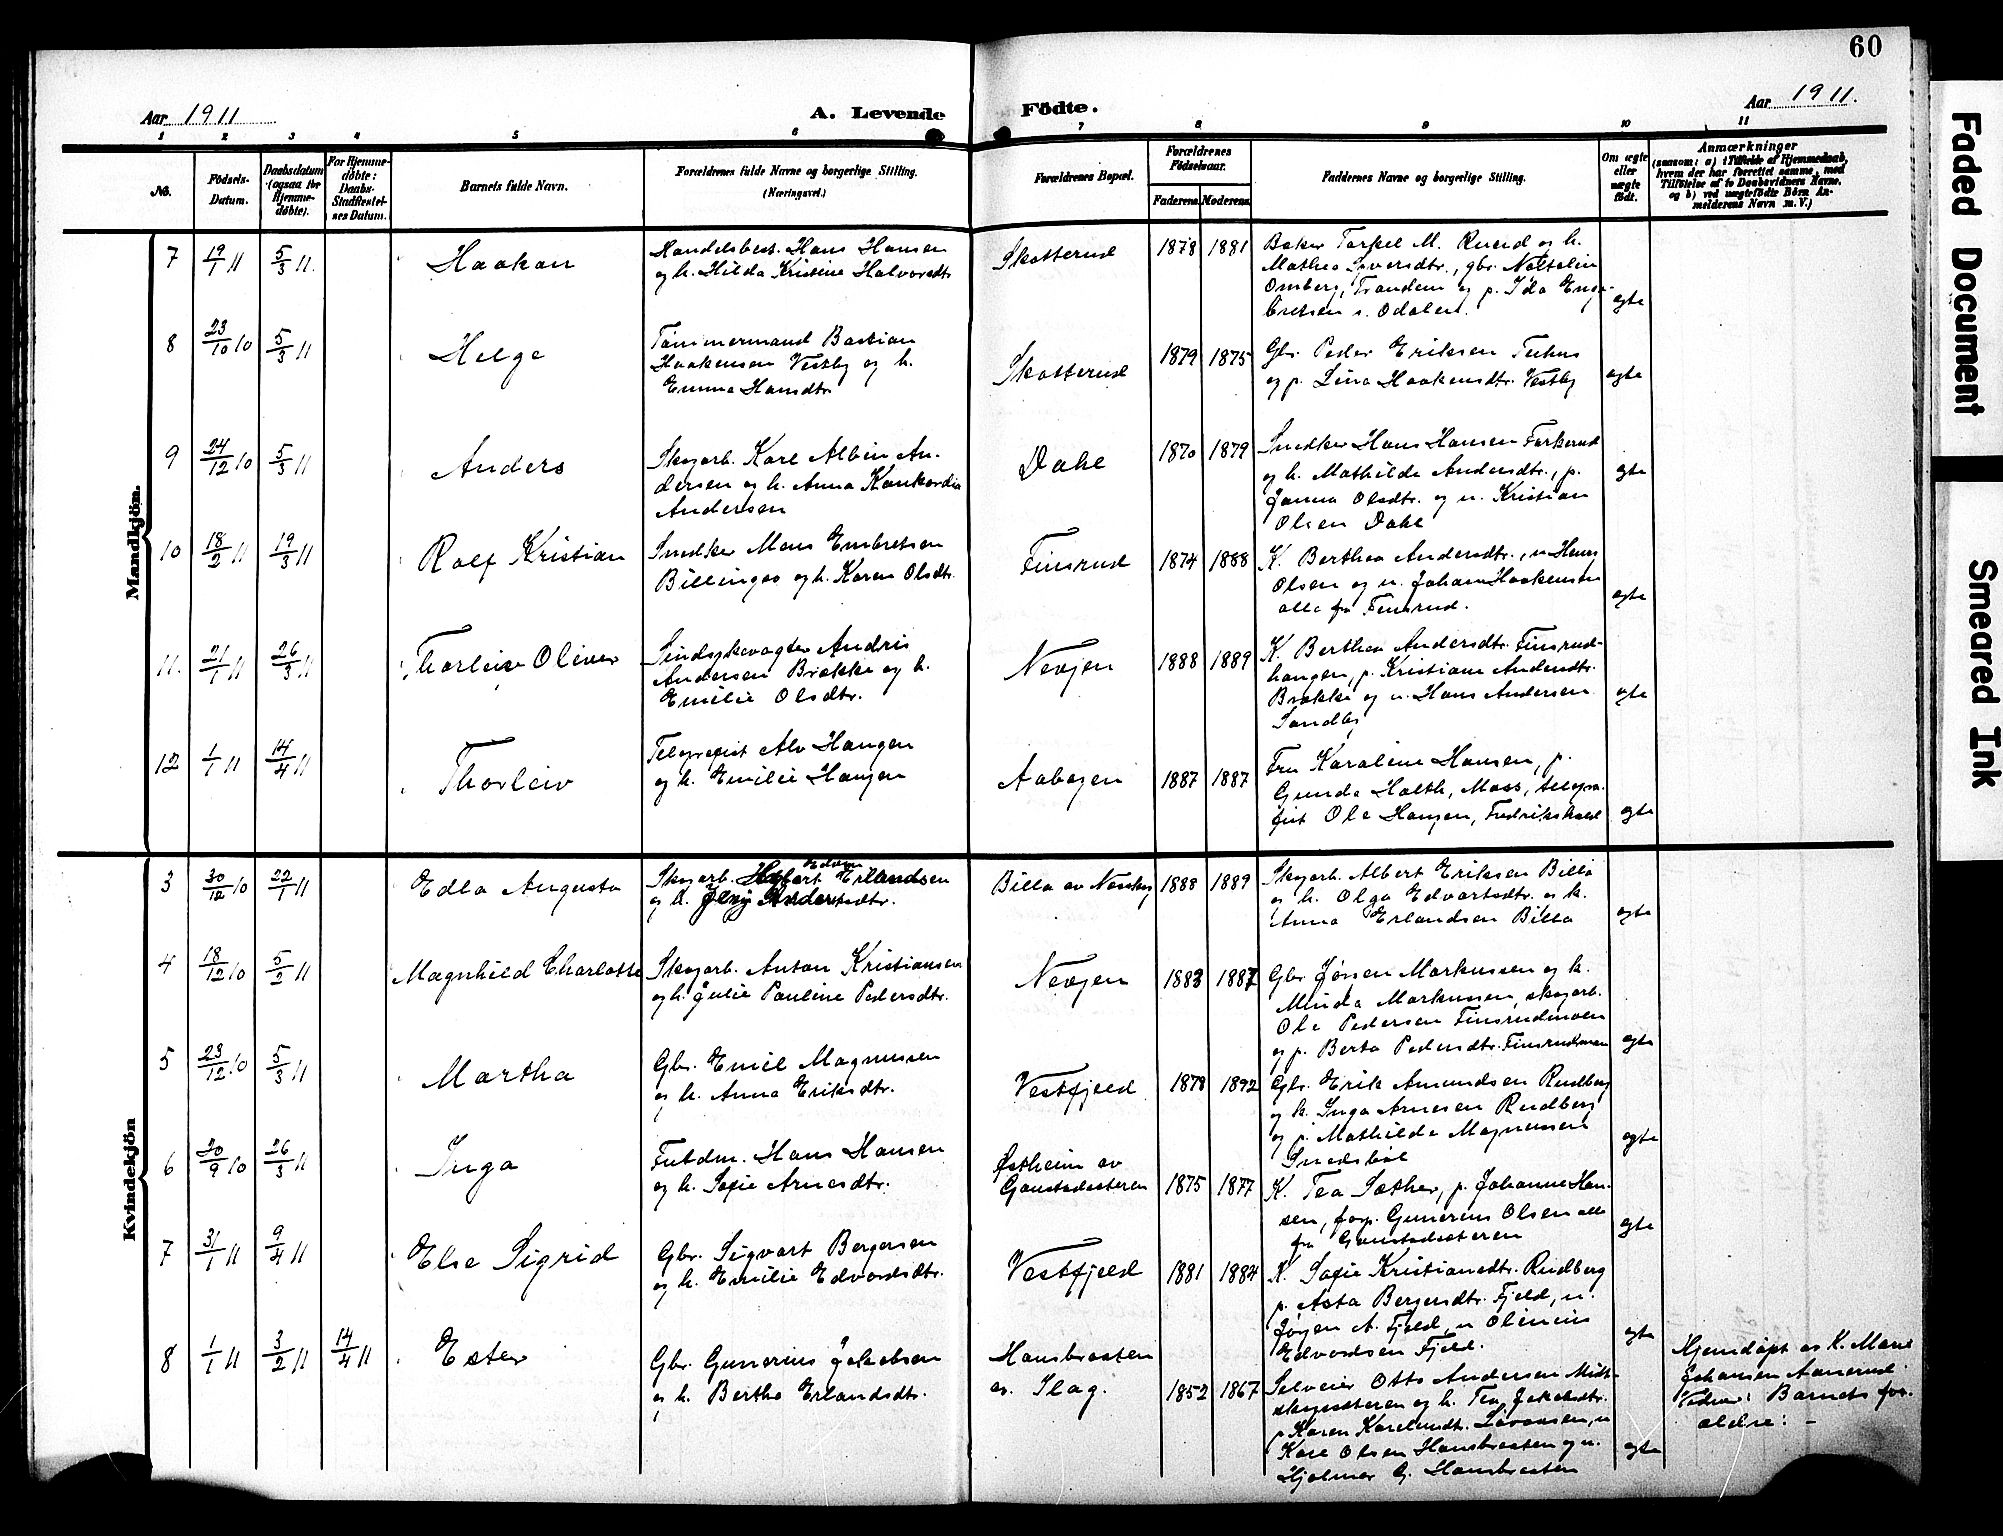 60
Aar 1911
A. Levende
Födte.
Aar 1911.
1 2 3 4 5 6 7 8 9 10 11
No.
Födsels-
Datum.
Daabsdatum
(ogsaa for
Hjemme-
døbte).
For Hjemme-
döbte:
Daabs-
Stadfæstel-
ses Datum.
Barnets fulde Navn.
Forældrenes fulde Navne og borgerlige Stilling.
(Næringsvei.)
Forældrenes Bopæl.
Forældrenes
Födselsaar.
Faderens. Moderens.
Faddernes Navne og borgerlige Stilling.
Om ægte
eller
uægte
født.
Anmærkninger
(saasom: a) i Tilfælde af Hjemmedaab,
hvem der har forrettet samme, med
Tilföielse af to Daabsvidners Navne,
og b) ved uægtefödte Börn An-
melderens Navn m. V.)
Mandkjön.
7 19/1 11 5/3 11. Haakon
Handelsbest. Hans Hansen
og h. Hilda Kristine Halvorsdtr.
Skotterud 1878 1881
Baker Torkel M. Ruud og h.
Mathea Syversdtr., gbr.
Omberg, Trandem og p. Ida Enge-
bretsen s. Odalen. egte
8 23/10 10 5/3 11 Helge
Tømmermand Bastian
Haakensen Vestby og h.
Emma Hansdtr.
Skotterud 1879 1875
Gbr. Peder Eriksen
og p. Lina Haakensdtr. Vestby egte
9 24/12 10 5/3 11 Anders
Skogarb. Karl Albin An-
dersen og h. Anna Konkordia
Andersen
Dahl 1870 1879
Snedker Hans Hansen
og h. Mathilde Andersdtr., p.
Janna Olsdtr. og u. Kristian
Olsen Dahl egte
10 18/2 11 19/3 11 Rolf Kristian
Snedker Mans Embretsen
Billingso og h. Karen Olsdtr.
Finsrud 1874 1888
K. Berthea Andersdtr., u. Hans
Olsen og u. Johan Haakensen
alle fra Finsrud. egte
11. 21/1 11 26/3 11 Thorleiv Oliver
Sindsykevogter Andris
Andersen Brække og h.
Emilie Olsdtr.
Nevjen 1888 1889
K. Berthea Andersdtr. Finsrud-
haugen, p. Kristiane Andersdtr.
Brække og u. Hans Andersen
Sandby egte
12 1/1 11 14/4 11 Thorleiv
Telegrafist Alv Haugen
og h. Emilie Haugen
Aabogen 1887 1887
Fru Karoline Hansen, p.
Gunda Holth, Moss, telegra-
fist Ole Haugen, Fredrikshald egte
Kvindekjön
3 30/12 10 22/1 11 Edla Augusta
Skogarb. Edvin Erlandsen
og h. Jenny
Billa av Nesskog 1888 1889
Skogarb. Albert Eriksen Billa
og h. Olga Edvartsdtr. og k.
Anna Erlandsen Billa egte
4 18/12 10 5/2 11 Magnhild Charlotte
Skogarb. Anton Kristiansen
og h. Julie Pauline Pedersdtr.
Nevjen 1883 1887
Gbr. Jørgen Markussen og h.
Minda Markussen, skogarb.
Ole Pedersen Finsrudmoen
og p. Berta Pedersdtr. Finsrudmoen egte
5 23/12 10 5/3 11 Martha
Gbr. Emil Magnussen
og h. Anna Eriksdtr.
Vestfjeld 1878 1892
Gbr. Erik Amundsen Rudberg
og h. Inga Arnesen Rudberg
og p. Mathilde Magnussen
Snedsbøl egte
6 30/9 10 26/3 11 Inga
Fubdm. Hans Hansen
og h. Sofie Arnesdtr.
Østheim av
Gaustadsæteren 1875 1877
K. Tea Sæther, p. Johanne Han-
sen, forp. Gunerius Olsen alle
fra Gaustadsæteren egte
7 31/1 11 9/4 11 Else Sigrid
Gbr. Sigvart Bergersen
og h. Emilie Edvardsdtr.
Vestfjeld 1881 1884
K. Sofie Kristiansdtr. Rudberg
p. Asta Bergersdtr. Fjeld, u.
Jørgen A. Fjeld, u. Olinius
Edvardsen Fjeld. egte
8 1/1 11 3/2 11 14/4 11 Ester
Gbr. Gunerius Jakobsen
og h. Berthe Erlandsdtr.
Hansbraaten
av. Slag. 1852 1867
Selveier Otto Andersen Midt-
skogsæteren og h. Tea Jakobsdtr.
p. Karen Karelundt. Lövaasen, u.
Kare Olsen Hansbraaten og u.
Hjalmar G. Hansbraaten egte
Hjemdøpt av K. Marie
Johansen Aanerud.
Vidner: Barnets for-
ældre. -
Faded Document
Smeared Ink